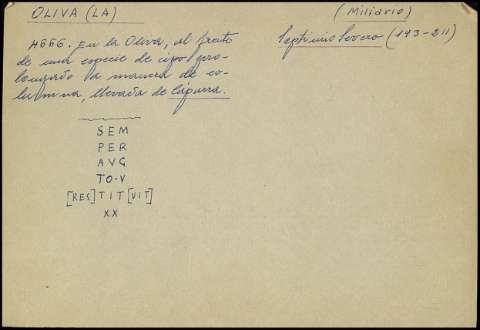 OLIVA (LA)
(Miliario)
4666. En la Oliva, al frente
de una especie de cipo pro-
longado a manera de co-
lumna, llevada de Cáparra.
Septimio Severo (193-211)
SEM
PER
AVG
TO·V
[RES]TIT[VIT]
XX